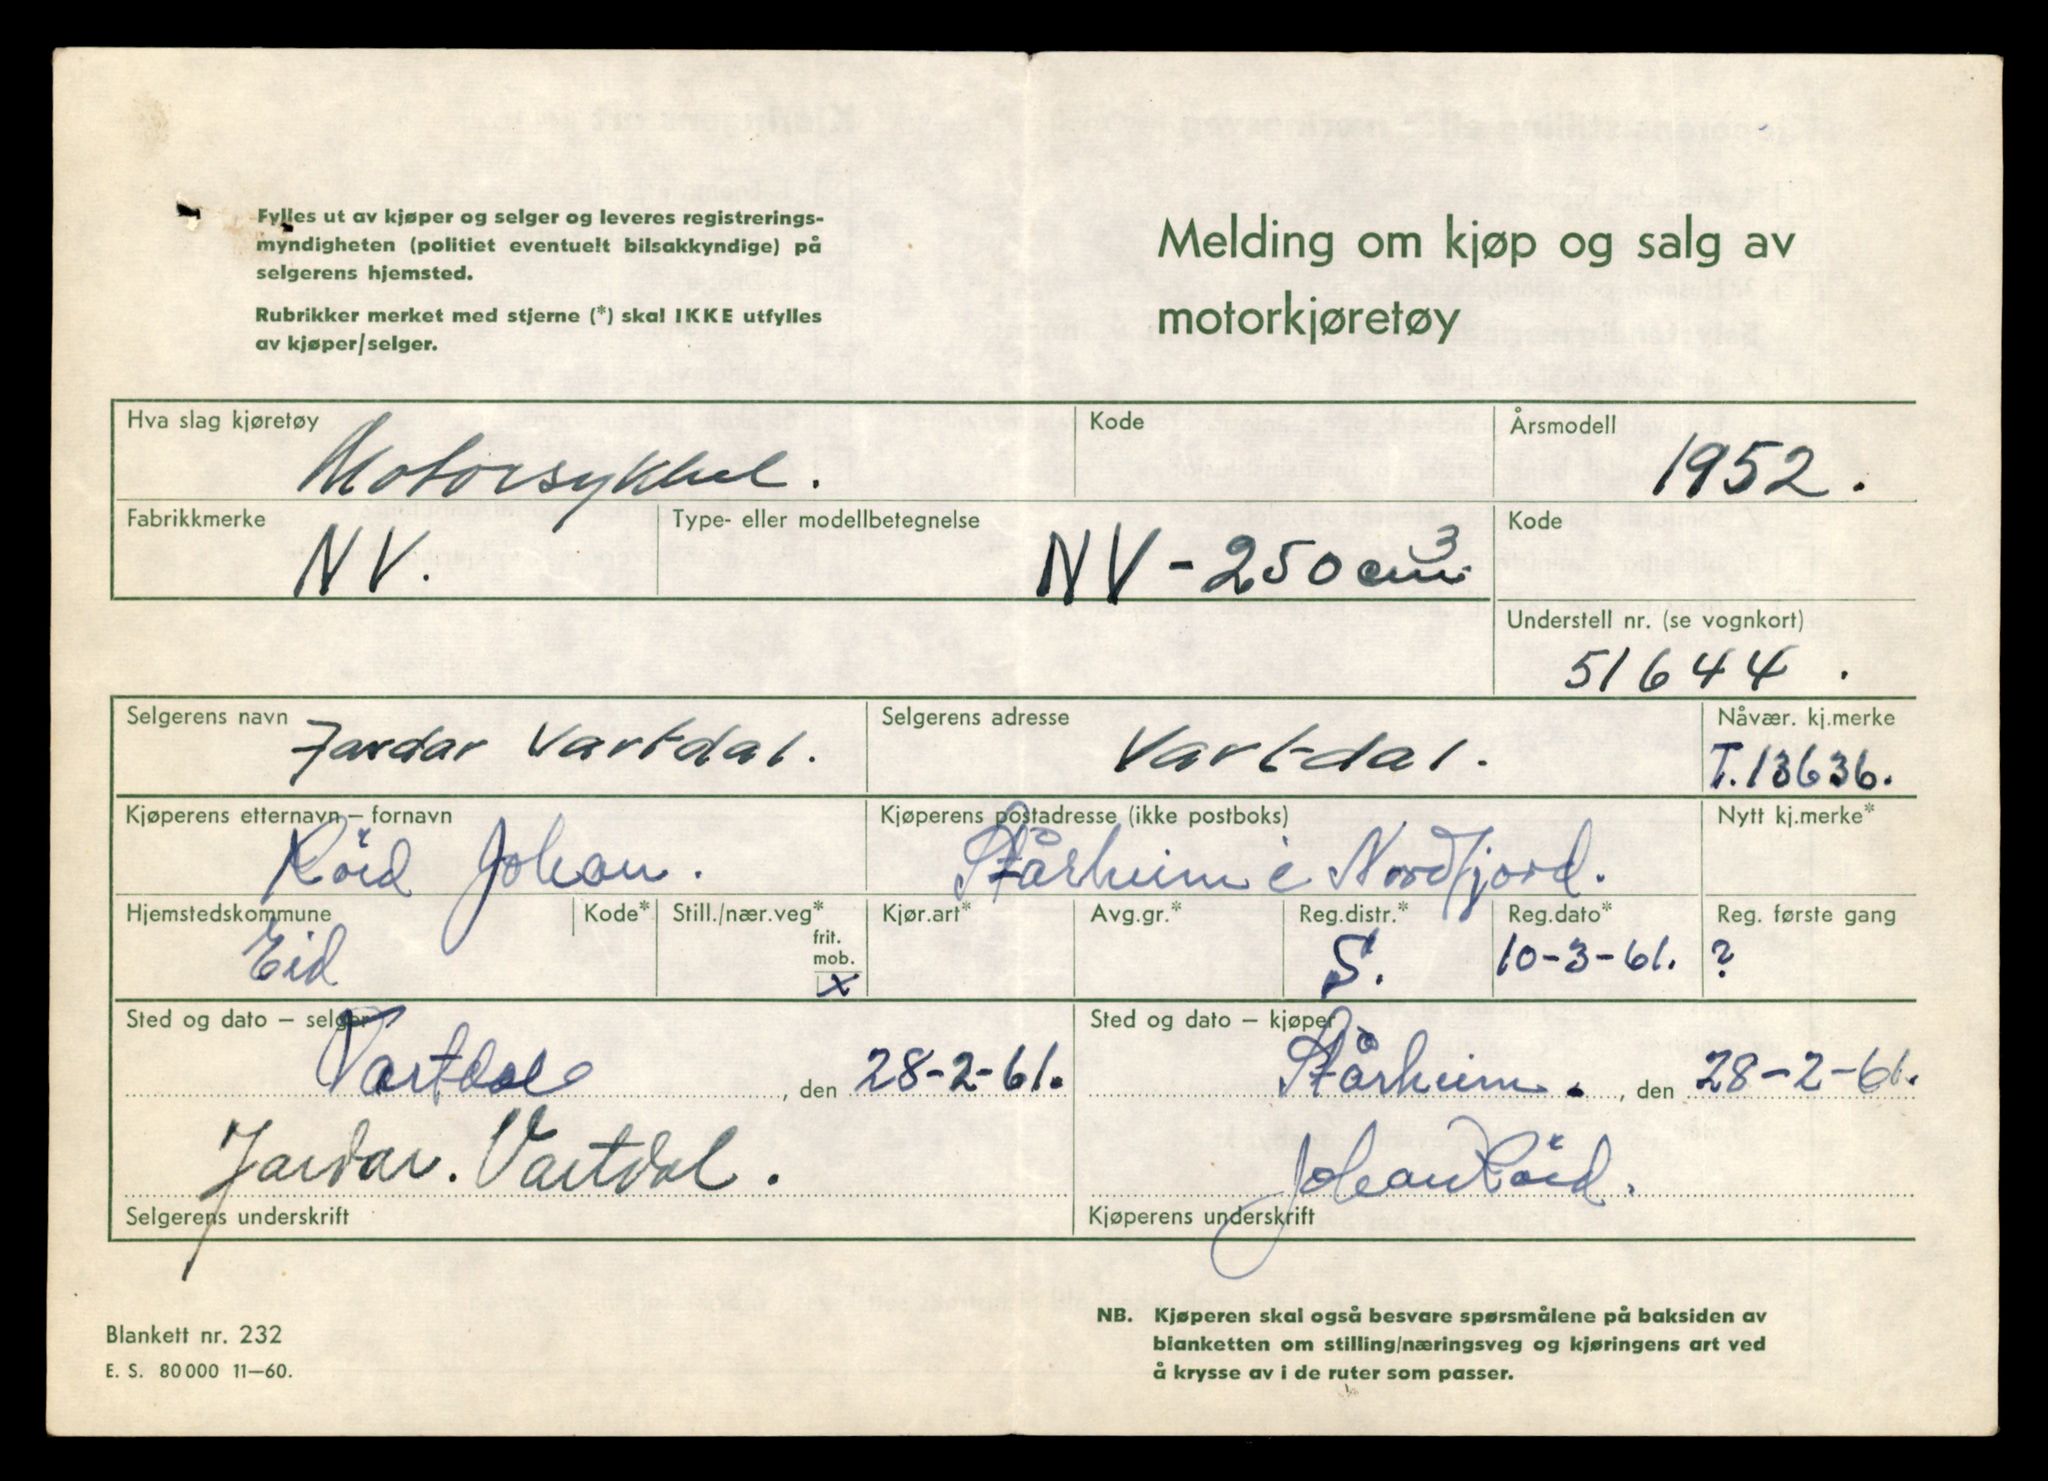 Fylles ut av kjøper og selger og leveres registrerings-
myndigheten (politiet eventuelt bilsakkyndige) på
selgerens hjemsted.
Rubrikker merket med stjerne (*) skal IKKE utfylles
av kjøper/selger.
Melding om kjøp og salg av
motorkjøretøy
Hva slag kjøretøy
Motorsykkel.
Kode
Årsmodell
1952.
Fabrikkmerke
NV.
Type- eller modellbetegnelse
NV-250 cm³.
Kode
Understell nr. (se vognkort)
51644.
Selgerens navn
Jardar Vartdal.
Selgerens adresse
Vartdal.
Nåvær. kj.merke
T.13636.
Kjøperens etternavn – fornavn
Johan.
Kjøperens postadresse (ikke postboks)
Stårheim i Nordfjord.
Nytt kj.merke*
Hjemstedskommune
Eid
Kode*
Still./nær.veg*
frit.
mob.
x
Kjør.art*
Avg.gr.*
Reg.distr.*
S.
Reg.dato*
10-3-61.
Reg. første gang
?
Sted og dato – selger
Vartdal, den 28-2-61.
Sted og dato – kjøper
Stårheim., den 28-2-61.
Jardar. Vartdal.
Selgerens underskrift
Johan
Kjøperens underskrift
Blankett nr. 232
E. S. 80 000 11–60.
NB. Kjøperen skal også besvare spørsmålene på baksiden av
blanketten om stilling/næringsveg og kjøringens art ved
å krysse av i de ruter som passer.